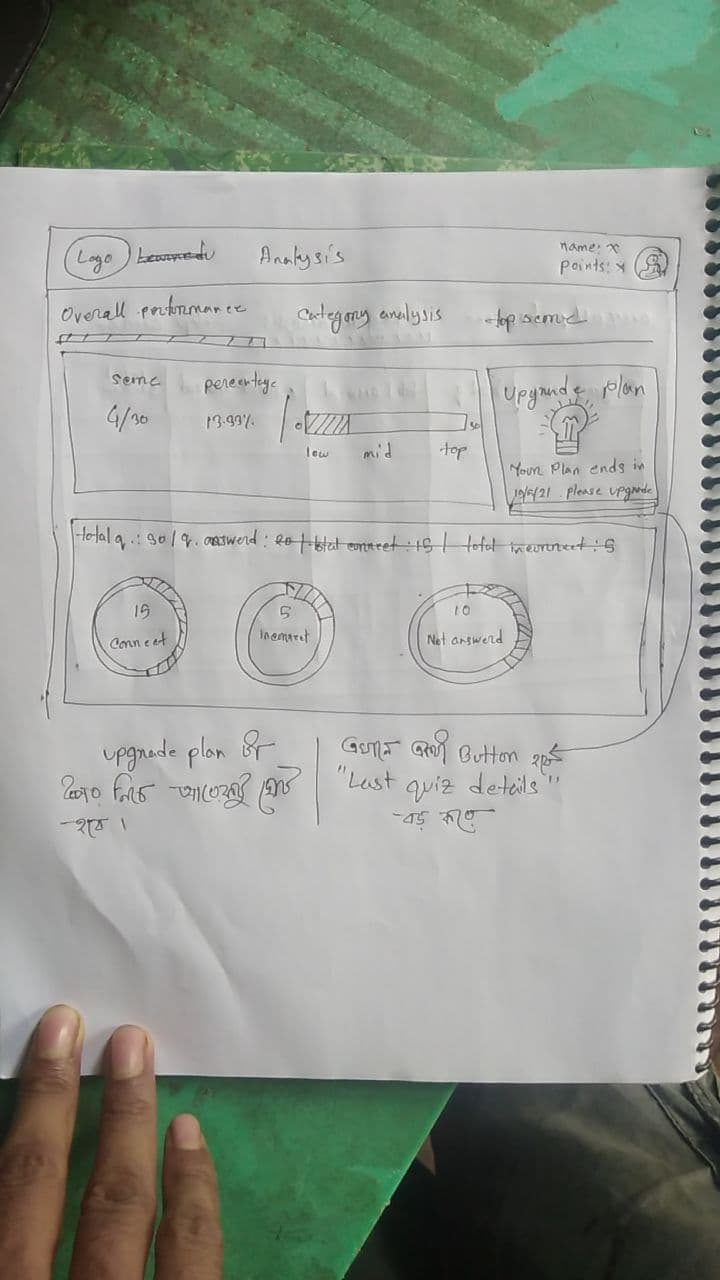 Logo Learnedu Analysis name: x
Points: x
Overall performance Category analysis top scored
score percentage
4/30 13.33%. 0 30
low mid top
Upgrade plan
Your Plan ends in
10/6/21. please upgrade
total q.: 30 / q. answerd : 20 / total correct : 15 / total incorrect : 5
15
Correct
5
incorrect
10
Not answerd
upgrade plan টা
নিচে আরেকটু
হবে।
এখানে একটা Button হবে
"Last quiz details"
বড় করে